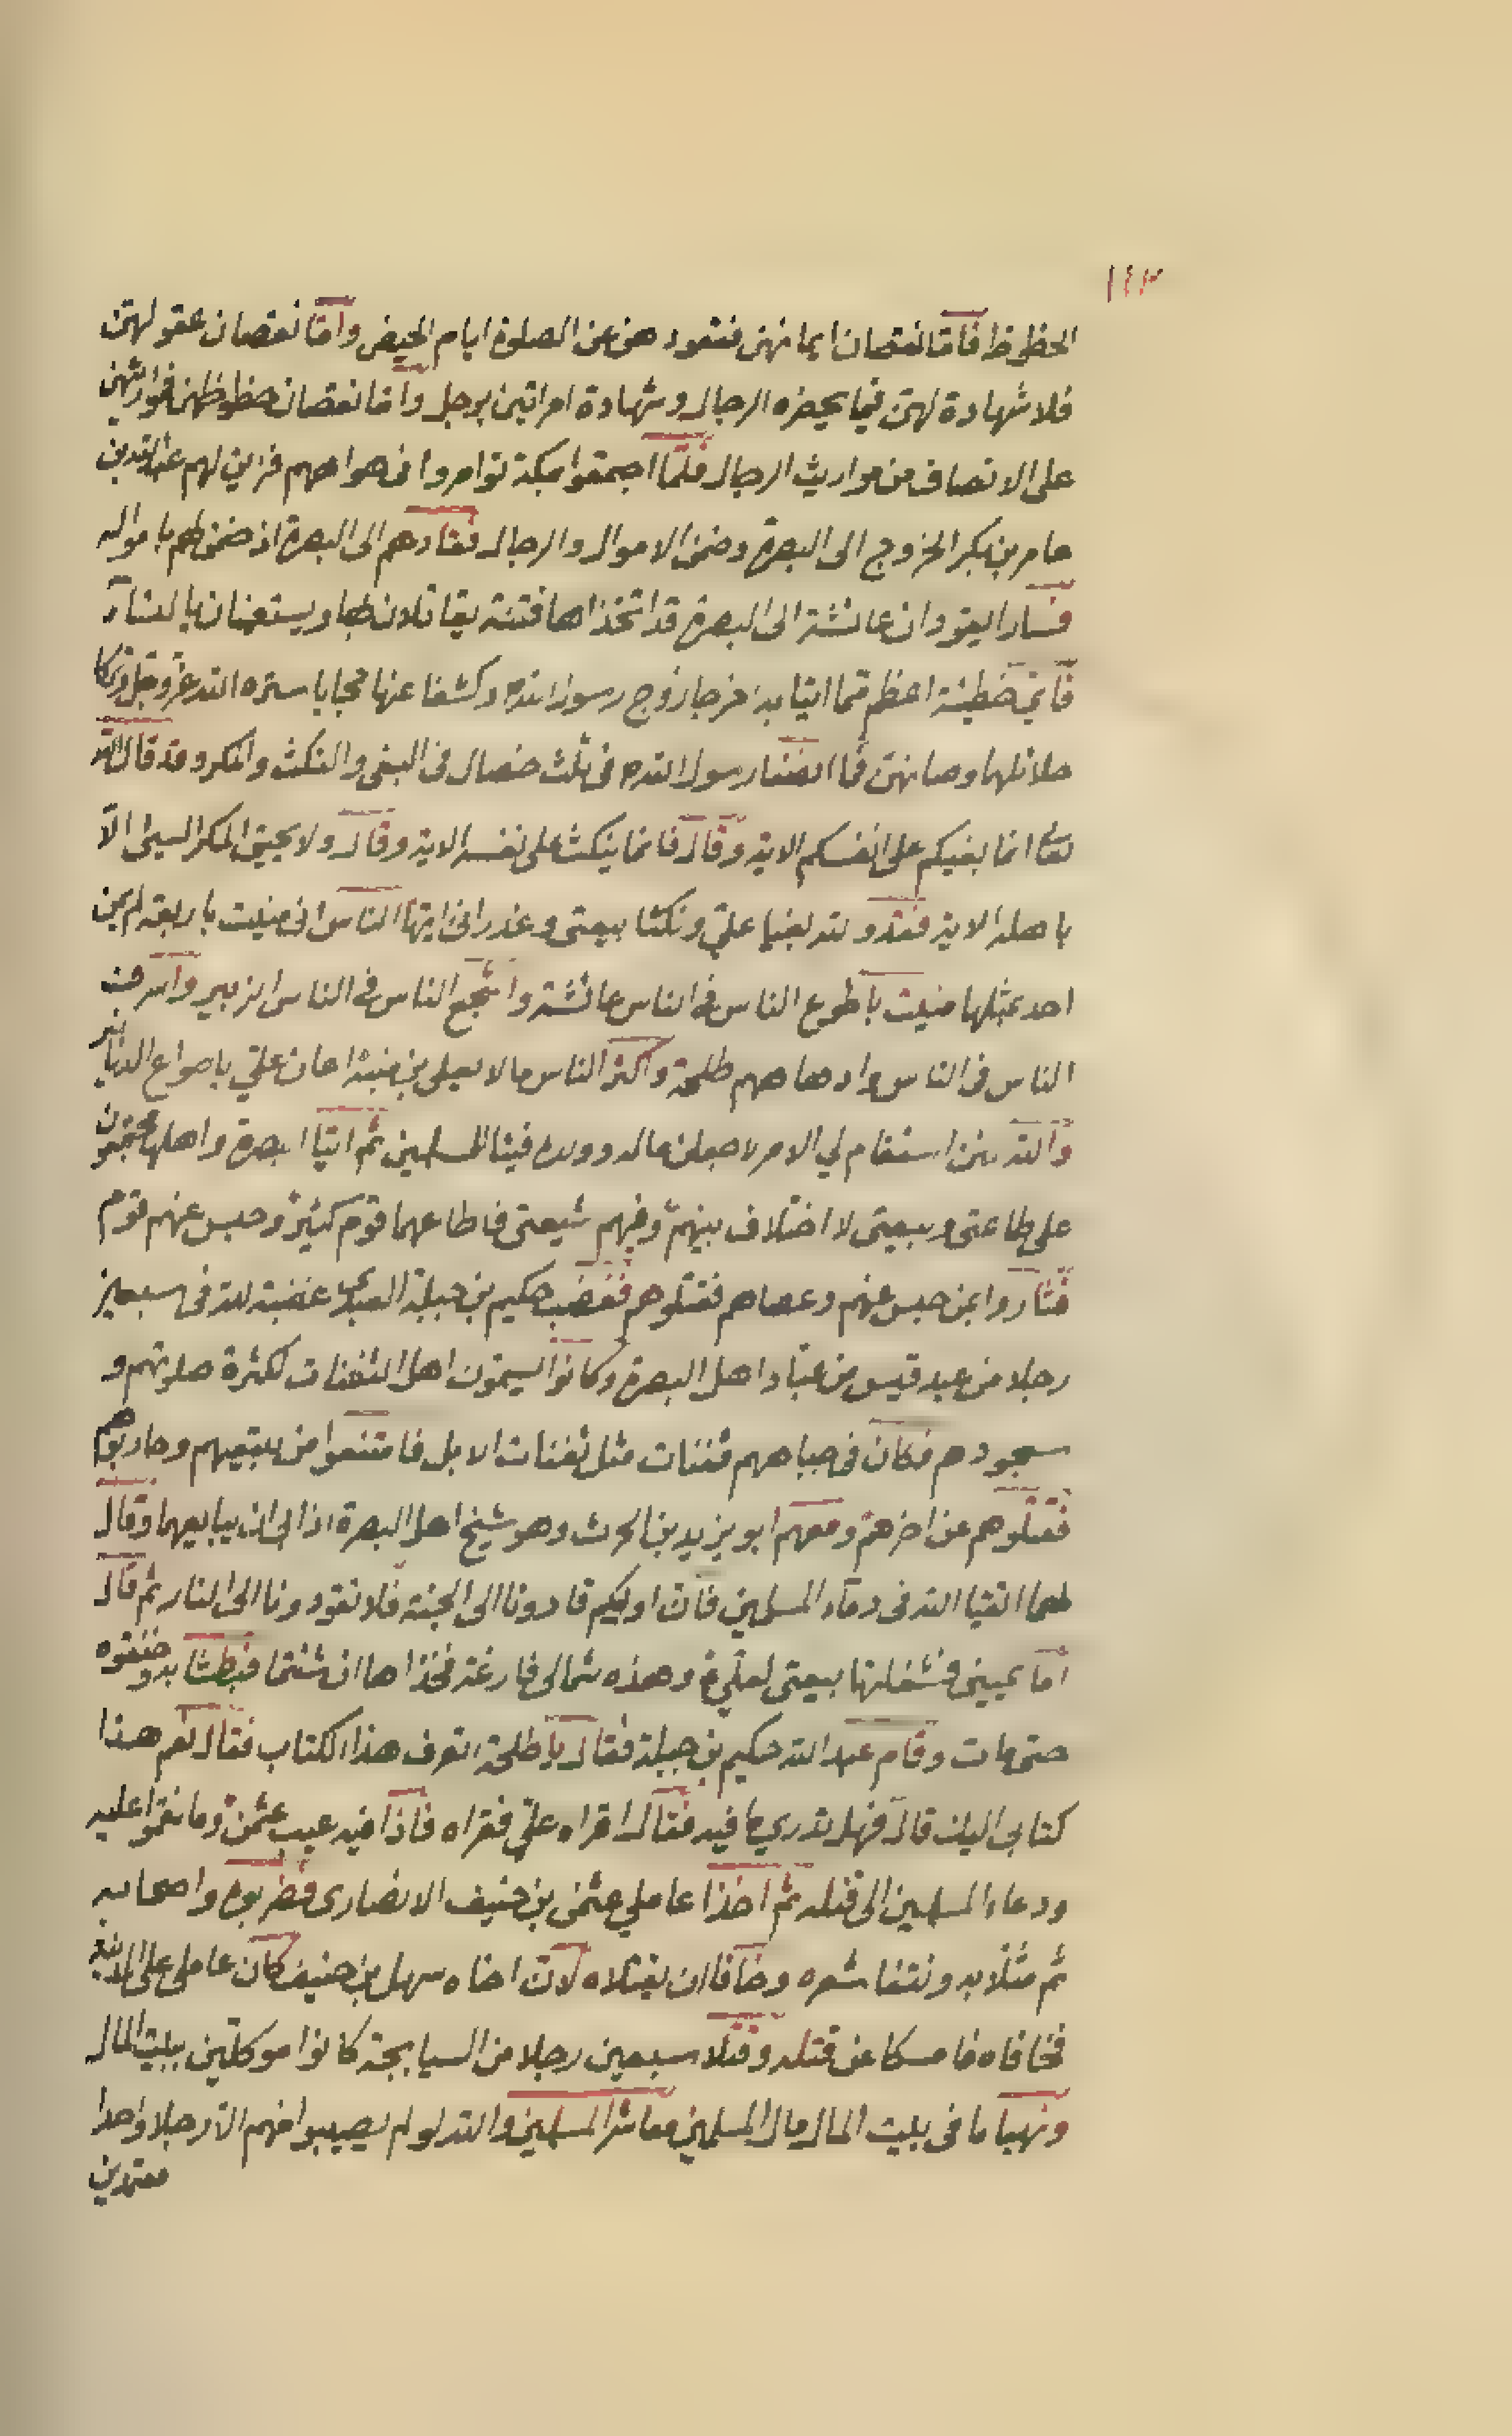 ١٤٢
الحظوظ فاما نقصان ايمانهن فقعودهن عن الصلوة ايام الحيض واما نقصان عقولهن
فلا شهادة لهن فيما يحضره الرجال وشهادة امراتين برجل واما نقصان حظوظهن فمواريثهن
على الانصاف من مواريث الرجال فلما اجتمعوا بمكة توامروا في هواهم فزين لهم عبد الله بن
عامر بن بكر الخروج الى البصرة وضمن الاموال والرجال فقادهم الى البصرة اذ ضمن لهم باموال
فسارا يقودان عائشة الى البصرة قد اتخذاها فتنة يقاتلون بها ويستعينان بالنساء
فاي خطيئة اعظم مما اتيا به اخرجا زوج رسول الله ص وكشفا عنها حجابا ستره الله عز وجل وتركا
حلائلهما وصانهن فما انصفا رسول الله ص في ثلث خصال في البغي والنكث والمكر وقد قال الله
تعالى انما بغيكم على انفسكم الاية وقال فانما ينكث على نفسه الاية وقال ولا يحيق المكر السيئ الا
باهله الاية فقد والله بغيا علي ونكثا بيعتي وغدرا في ايها الناس اني منيت باربعة لم يمن
احد بمثلها منيت باطوع الناس في الناس عائشة واشجع الناس في الناس الزبير
الناس في الناس وادهاهم طلحة واكثر الناس مالا يعلى بن منية اعان علي باصواع الدنانير
والله لئن استقام لي الامر لاجعلن ماله وولده فيئا للمسلمين ثم اتيا البصرة واهلها مجتمعون
على طاعتي وبيعتي لا اختلاف بينهم وفيهم شيعتي فاطاعهما قوم كثير وحبس عنهم قوم
فثاروا بمن حبس عنهم وعصاهم فقتلوهم فغضب حكيم بن جبلة العبدي غضبة لله في سبعين
رجلا من عبد قيس من عباد اهل البصرة وكانوا يسمون اهل الثفنات لكثرة صلوتهم و
سجودهم فكان في جباههم ثفنات مثل ثفنات الابل فامتنعوا من بيعتهم وحاربوهم
فقتلوهم عن اخرهم ومعهم ابو يزيد بن الحرث وهو شيخ اهل البصرة اذ ابى ان يبايعهما وقال
لهما اتقيا الله في دماء المسلمين فان اوليكم قادونا الى الجنة فلا تقودونا الى النار ثم قال
اما يميني فشغلتها بيعتي لعلي ع وهذه شمالي فارغة فخذاها ان شئتما فبطشا به وخنقوه
حتى مات وقام عبد الله حكيم بن جبلة فقال يا طلحة اتعرف هذا الكتاب فقال نعم هذا
كتابي اليك قال فهل تدري ما فيه فقال اقراه علي فقراه فاذا فيه عيب عثمن وما نقموا عليه
ودعاء المسلمين الى قتله ثم اخذا عاملي عثمن بن حنيف الانصاري فضربوه واصحابه
ثم مثلا به ونتفا شعره وخافا ان يقتلاه لان اخاه سهل بن حنيف كان عاملي على المدينة
فخافاه فامسكا عن قتله وقتلا سبعين رجلا من السيابجة كانوا موكلين ببيت المال
ونهبا ما في بيت المال مال المسلمين معاشر المسلمين والله لو لم يصيبوا منهم الا رجلا واحدا
معتمدين